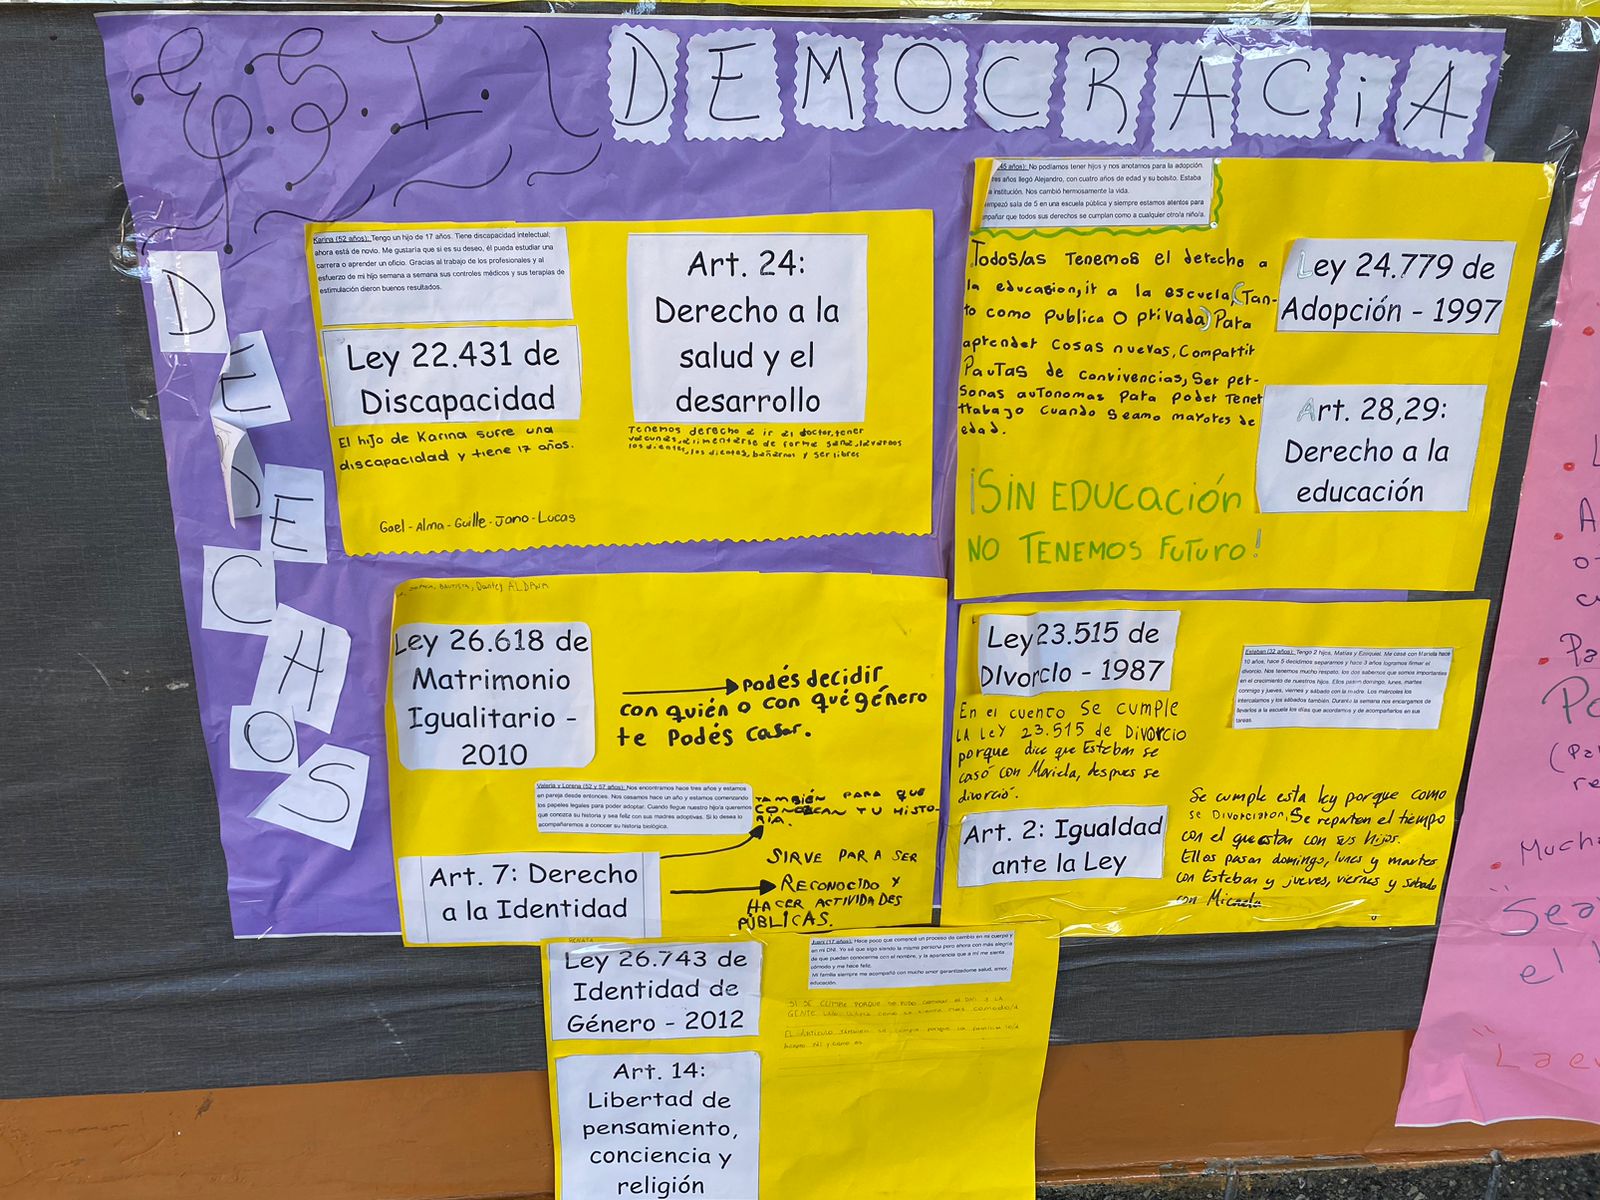 E.S.I.
DEMOCRACiA
DERECHOS
Karina (52 años): Tengo un hijo de 17 años. Tiene discapacidad intelectual;
ahora está de novio. Me gustaría que si es su deseo, él pueda estudiar una
carrera o aprender un oficio. Gracias al trabajo de los profesionales y al
esfuerzo de mi hijo semana a semana sus controles médicos y sus terapias de
estimulación dieron buenos resultados.
Ley 22.431 de
Discapacidad
El hijo de Karina sufre una
discapacidad y tiene 17 años.
Art. 24:
Derecho a la
salud y el
desarrollo
Tenemos derecho a ir al doctor, tener
vacunas, alimentarse de forma sana, lavarnos
los dientes, los dientes, bañarnos y ser libres
Gael - Alma - Guille - Jano - Lucas
45 años): No podíamos tener hijos y nos anotamos para la adopción.
tres años llegó Alejandro, con cuatro años de edad y su bolsito. Estaba
institución. Nos cambió hermosamente la vida.
empezó sala de 5 en una escuela pública y siempre estamos atentos para
que todos sus derechos se cumplan como a cualquier otro/a niño/a.
Todos/as Tenemos el derecho a
la educasion, ir a la escuela (Tan-
to como publica o privada) Para
aprender cosas nuevas, Compartir
Pautas de convivencias, Ser per-
sonas autonomas para poder Tener
trabajo cuando seamo mayores de
edad.
¡SIN EDUCACIón
NO TENEMOS FUTURO!
Ley 24.779 de
Adopción - 1997
Art. 28,29:
Derecho a la
educación
BAUTISTA, Dante, ALDANA
Ley 26.618 de
Matrimonio
Igualitario -
2010
Podés decidir
con quién o con qué género
te Podés casar.
Valeria y Lorena (52 y 57 años): Nos encontramos hace tres años y estamos
en pareja desde entonces. Nos casamos hace un año y estamos comenzando
los papeles legales para poder adoptar. Cuando llegue nuestro hijo/a queremos
que conozca su historia y sea feliz con sus madres adoptivas. Si lo desea lo
acompañaremos a conocer su historia biológica.
TAMBIÉN PARA QUE
CONOZCAN TU HISTO-
RIA.
Art. 7: Derecho
a la Identidad
SIRVE PARA SER
RECONOCIDO Y
HACER ACTIVIDADES
PÚBLICAS.
Ley 23.515 de
DIvorcIo - 1987
Esteban (32 años): Tengo 2 hijos, Matías y Ezequiel. Me casé con Mariela hace
10 años, hace 5 decidimos separarnos y hace 3 años logramos firmar el
divorcio. Nos tenemos mucho respeto, los dos sabemos que somos importantes
en el crecimiento de nuestros hijos. Ellos pasan domingo, lunes, martes
conmigo y jueves, viernes y sábado con la madre. Los miércoles los
intercalamos y los sábados también. Durante la semana nos encargamos de
llevarlos a la escuela los días que acordamos y de acompañarlos en sus
tareas.
En el cuento se cumple
LA LEY 23.515 de Divorcio
porque dice que Esteban se
casó con Mariela, despues se
divorció.
Art. 2: Igualdad
ante la Ley
Se cumple esta ley porque como
se Divorciaron, Se reparten el tiempo
con el que estan con sus hijos.
Ellos pasan domingo, lunes y martes
con Esteban y jueves, viernes y sabado
con Micaela
RENATA
Ley 26.743 de
Identidad de
Género - 2012
Juani (17 años): Hace poco que comencé un proceso de cambio en mi cuerpo y
en mi DNI. Yo sé que sigo siendo la misma persona pero ahora con más alegría
de que puedan conocerme con el nombre, y la apariencia que a mí me sienta
cómodo y me hace feliz.
Mi familia siempre me acompañó con mucho amor garantizándome salud, amor,
educación.
SI SE CUMPLE PORQUE SE PUDO CAMBIAR EL DNI Y LA
GENTE como se siente mas comodo/a
EL ARTICULO TAMBIEN se cumple porque la familia lo/a
Art. 14:
Libertad de
pensamiento,
conciencia y
religión
Mucha
el
"La